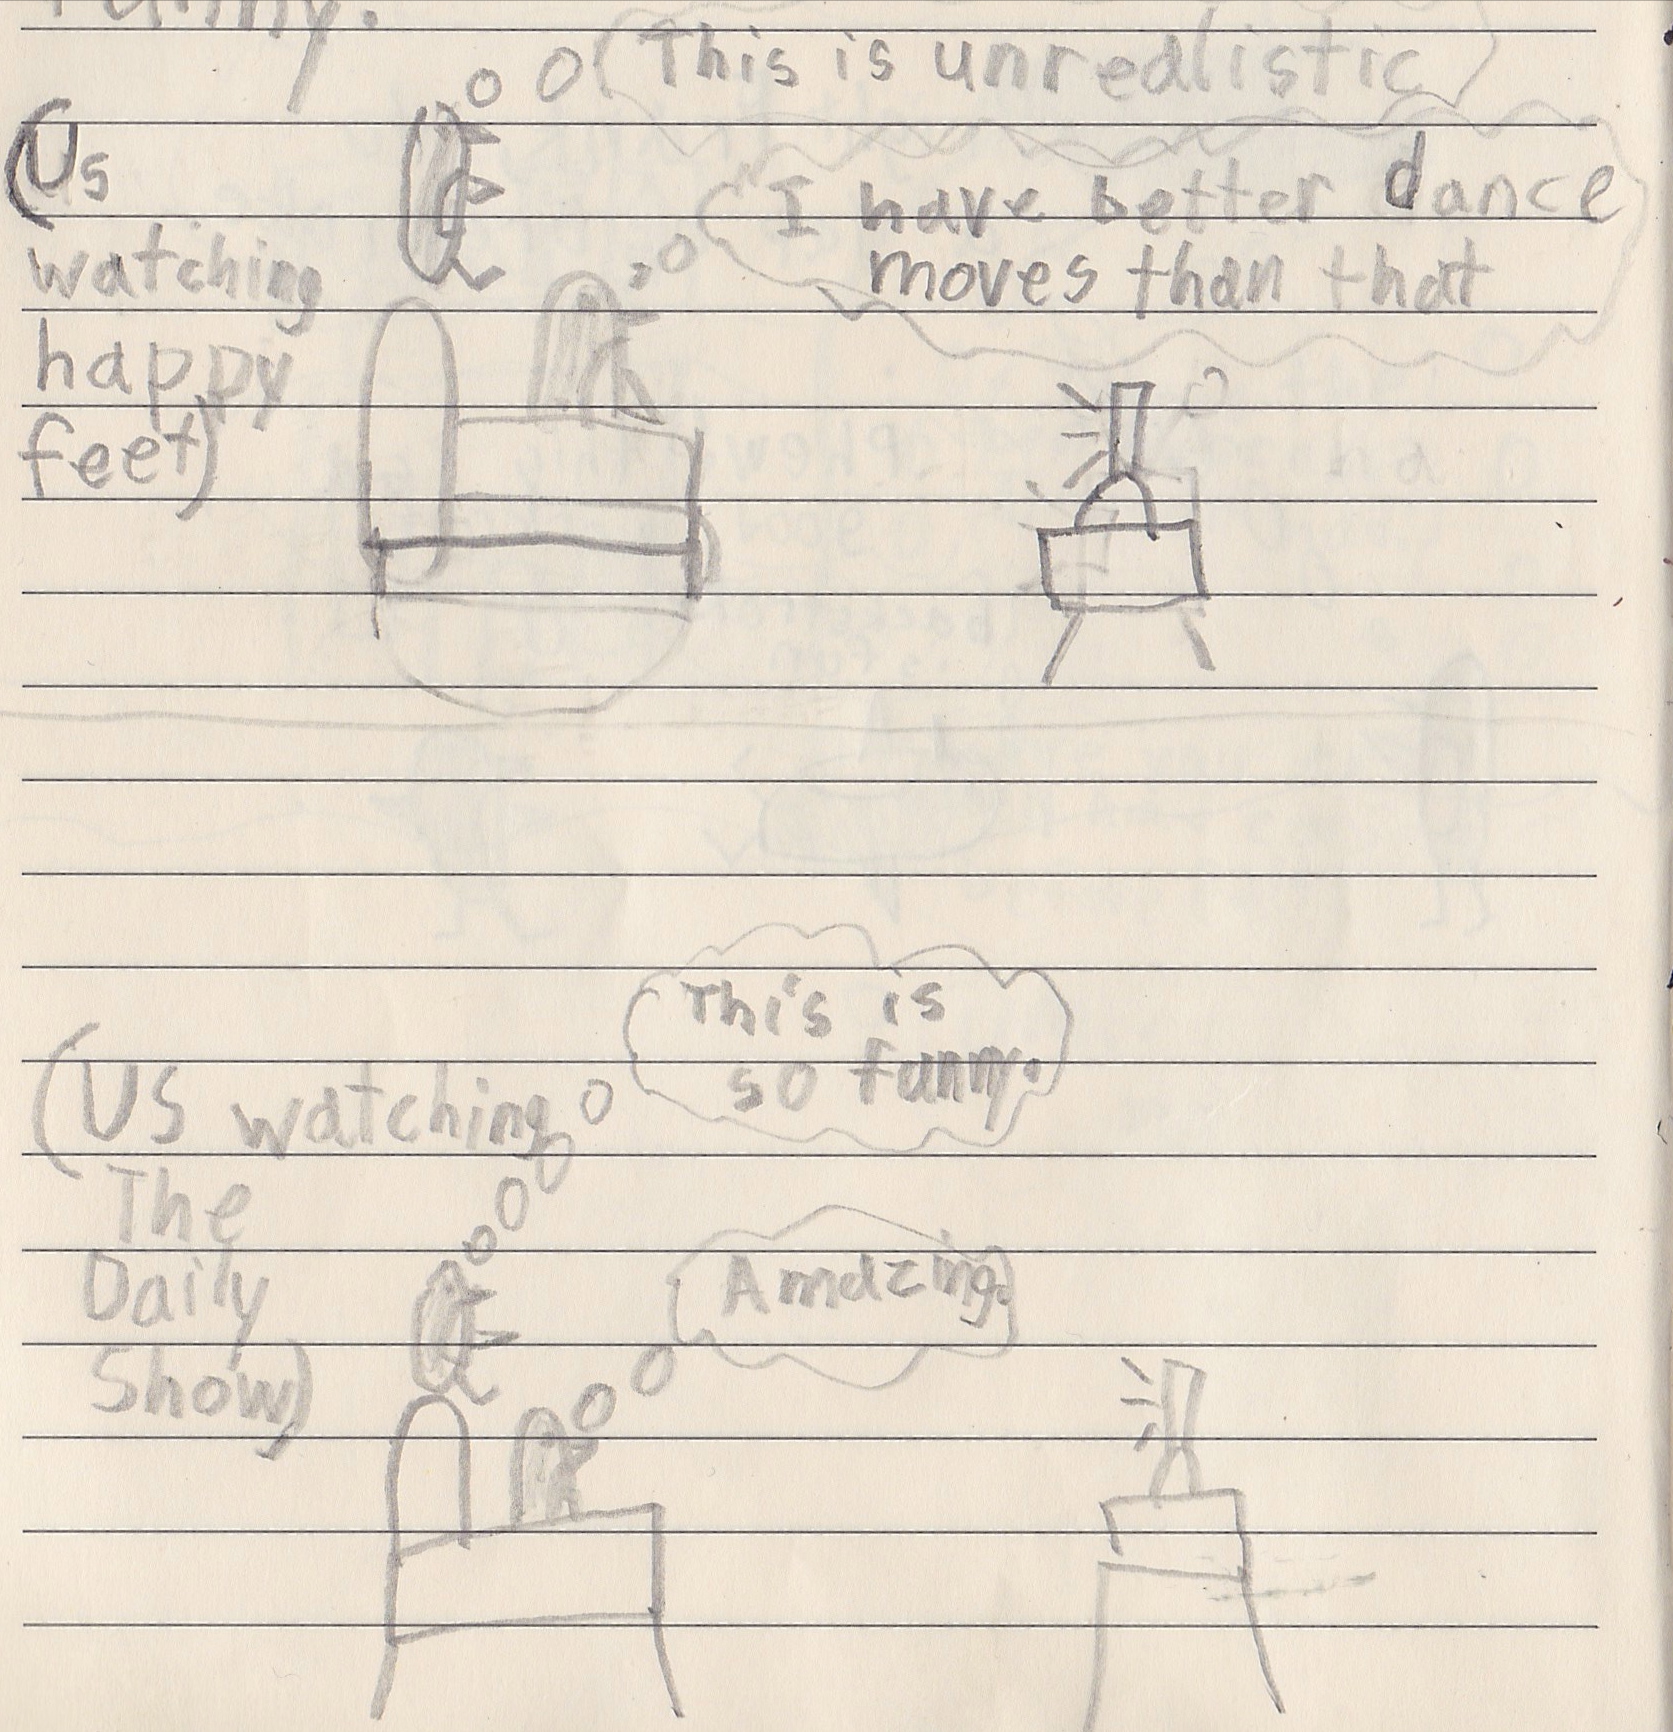 funny.
This is unrealistic
(Us
watching
happy
feet)
I have better dance
moves than that
This is
so funny.
(US watching
The
Daily
Show)
Amazing.